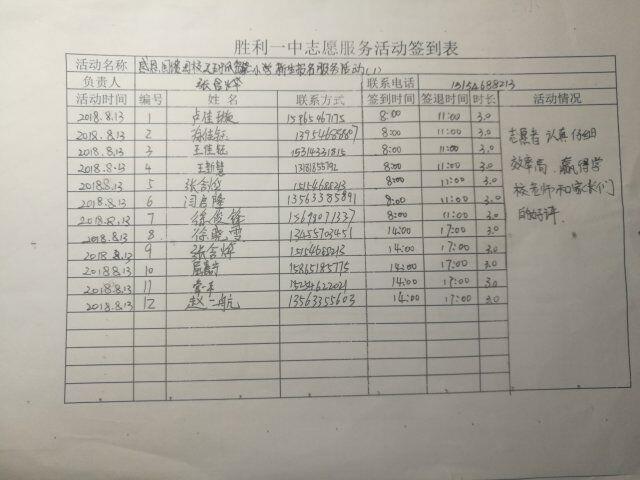 胜利一中志愿服务活动签到表
活动名称 小学新生报名服务活动(1)
负责人 张含烨 联系电话 15154688213
活动时间 编号 姓名 联系方式 签到时间 签退时间 时长 活动情况
2018.8.13 1 卢佳璇 8:00 11:00 3.0
2018.8.13 2 13954688807 8:00 11:00 3.0
2018.8.13 3 王佳钰 15314331815 8:00 11:00 3.0
2018.8.13 4 王新慧 13181855792 8:00 11:00 3.0
2018.8.13 5 张含烨 15154688213 8:00 11:00 3.0
2018.8.13 6 闫启隆 13563385891 8:00 11:00 3.0
2018.8.13 7 徐俊锋 15693071337 8:00 11:00 3.0
2018.8.13 8 徐晓雪 13455703451 14:00 17:00 3.0
2018.8.13 9 张含烨 15154688213 14:00 17:00 3.0
2018.8.13 10 15865185775 14:00 17:00 3.0
2018.8.13 11 15254622021 14:00 17:00 3.0
2018.8.13 12 赵一航 13563355603 14:00 17:00 3.0
志愿者认真仔细
效率高,赢得学
校老师和家长们
的好评.